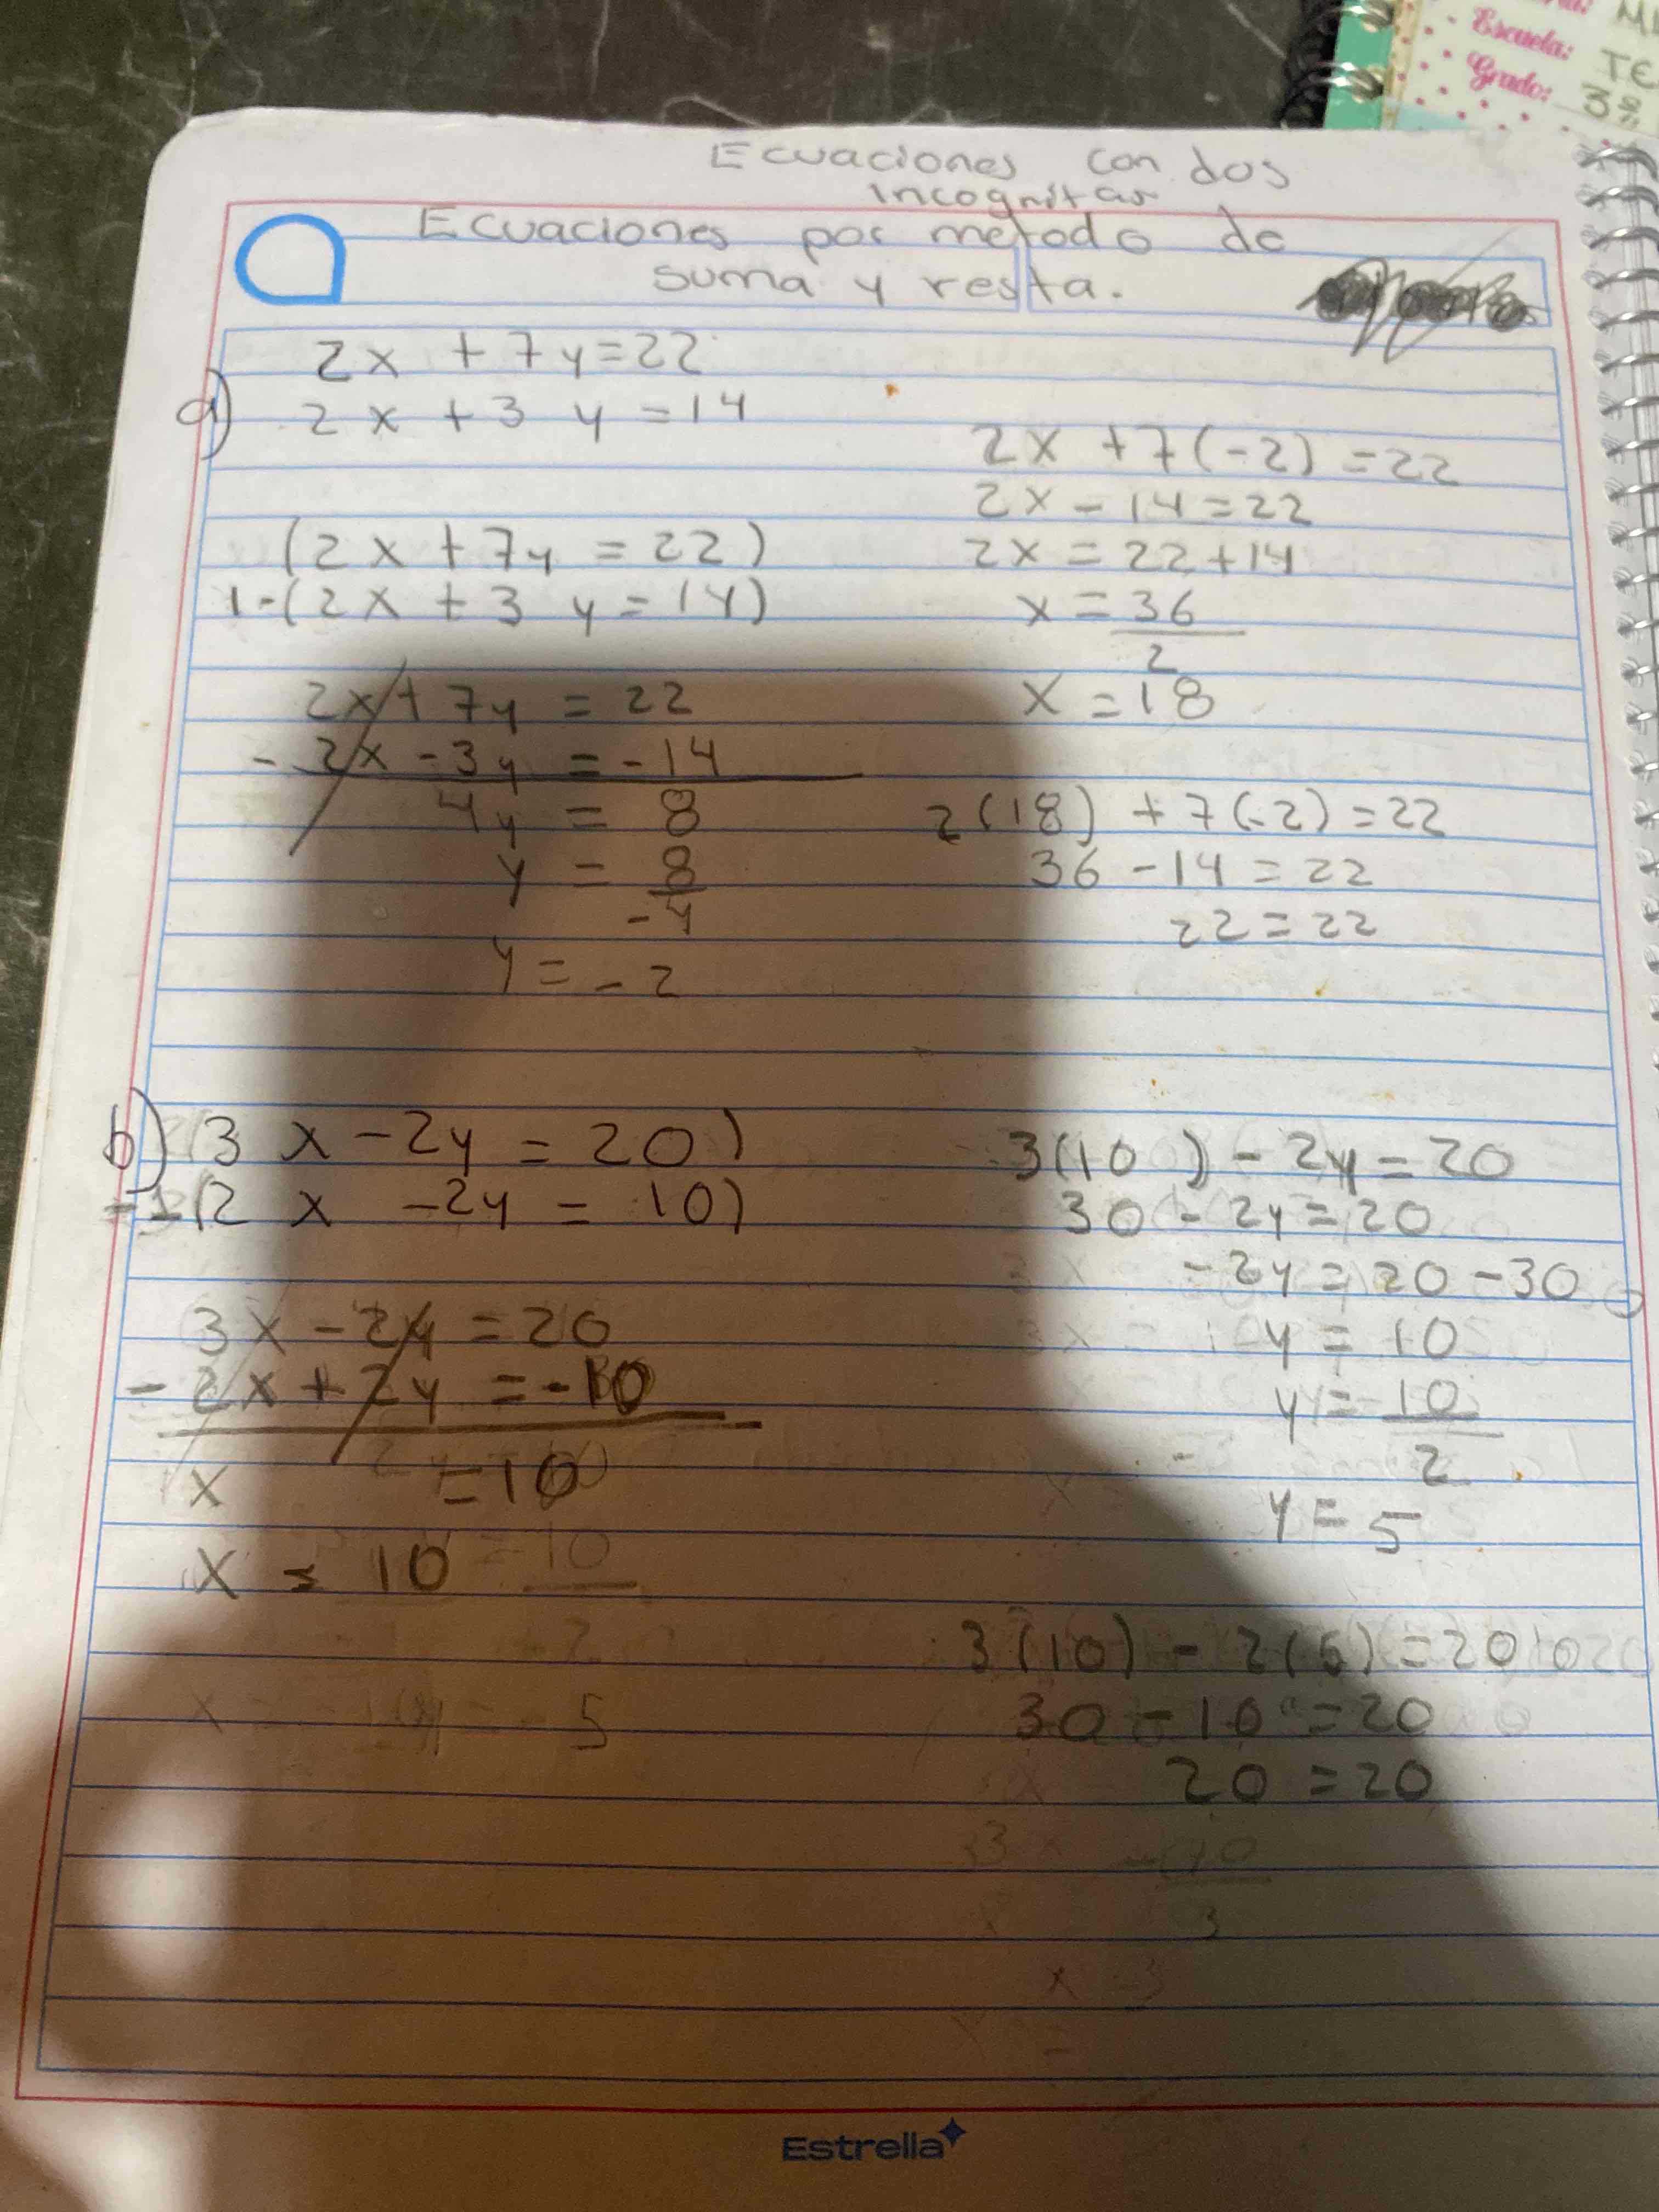 Escuela: TE
Grado: 3º
Ecuaciones con dos
incognitas
Ecuaciones por metodo de
suma y resta.
2x + 7y=22
a) 2x + 3 y =14
(2x + 7y = 22)
1-(2x + 3 y = 14)
2x + 7y = 22
- 2x - 3y = -14
4y = 8
y = 8
-4
y = - 2
2x + 7(-2) =22
2x - 14=22
2x = 22+14
x = 36
2
x =18
2(18) + 7(-2) =22
36 -14 = 22
22=22
b) (3 x -2y = 20)
-1(2 x -2y = 10)
3x - 2y = 20
- 2x + 2y = -10
x =10
x = 10
3(10 ) - 2y = 20
30 - 2y = 20
-2y = 20 -30
y = 10
y = 10
2
y = 5
3(10) - 2(5) =20
30 - 10 =20
20 =20
Estrella